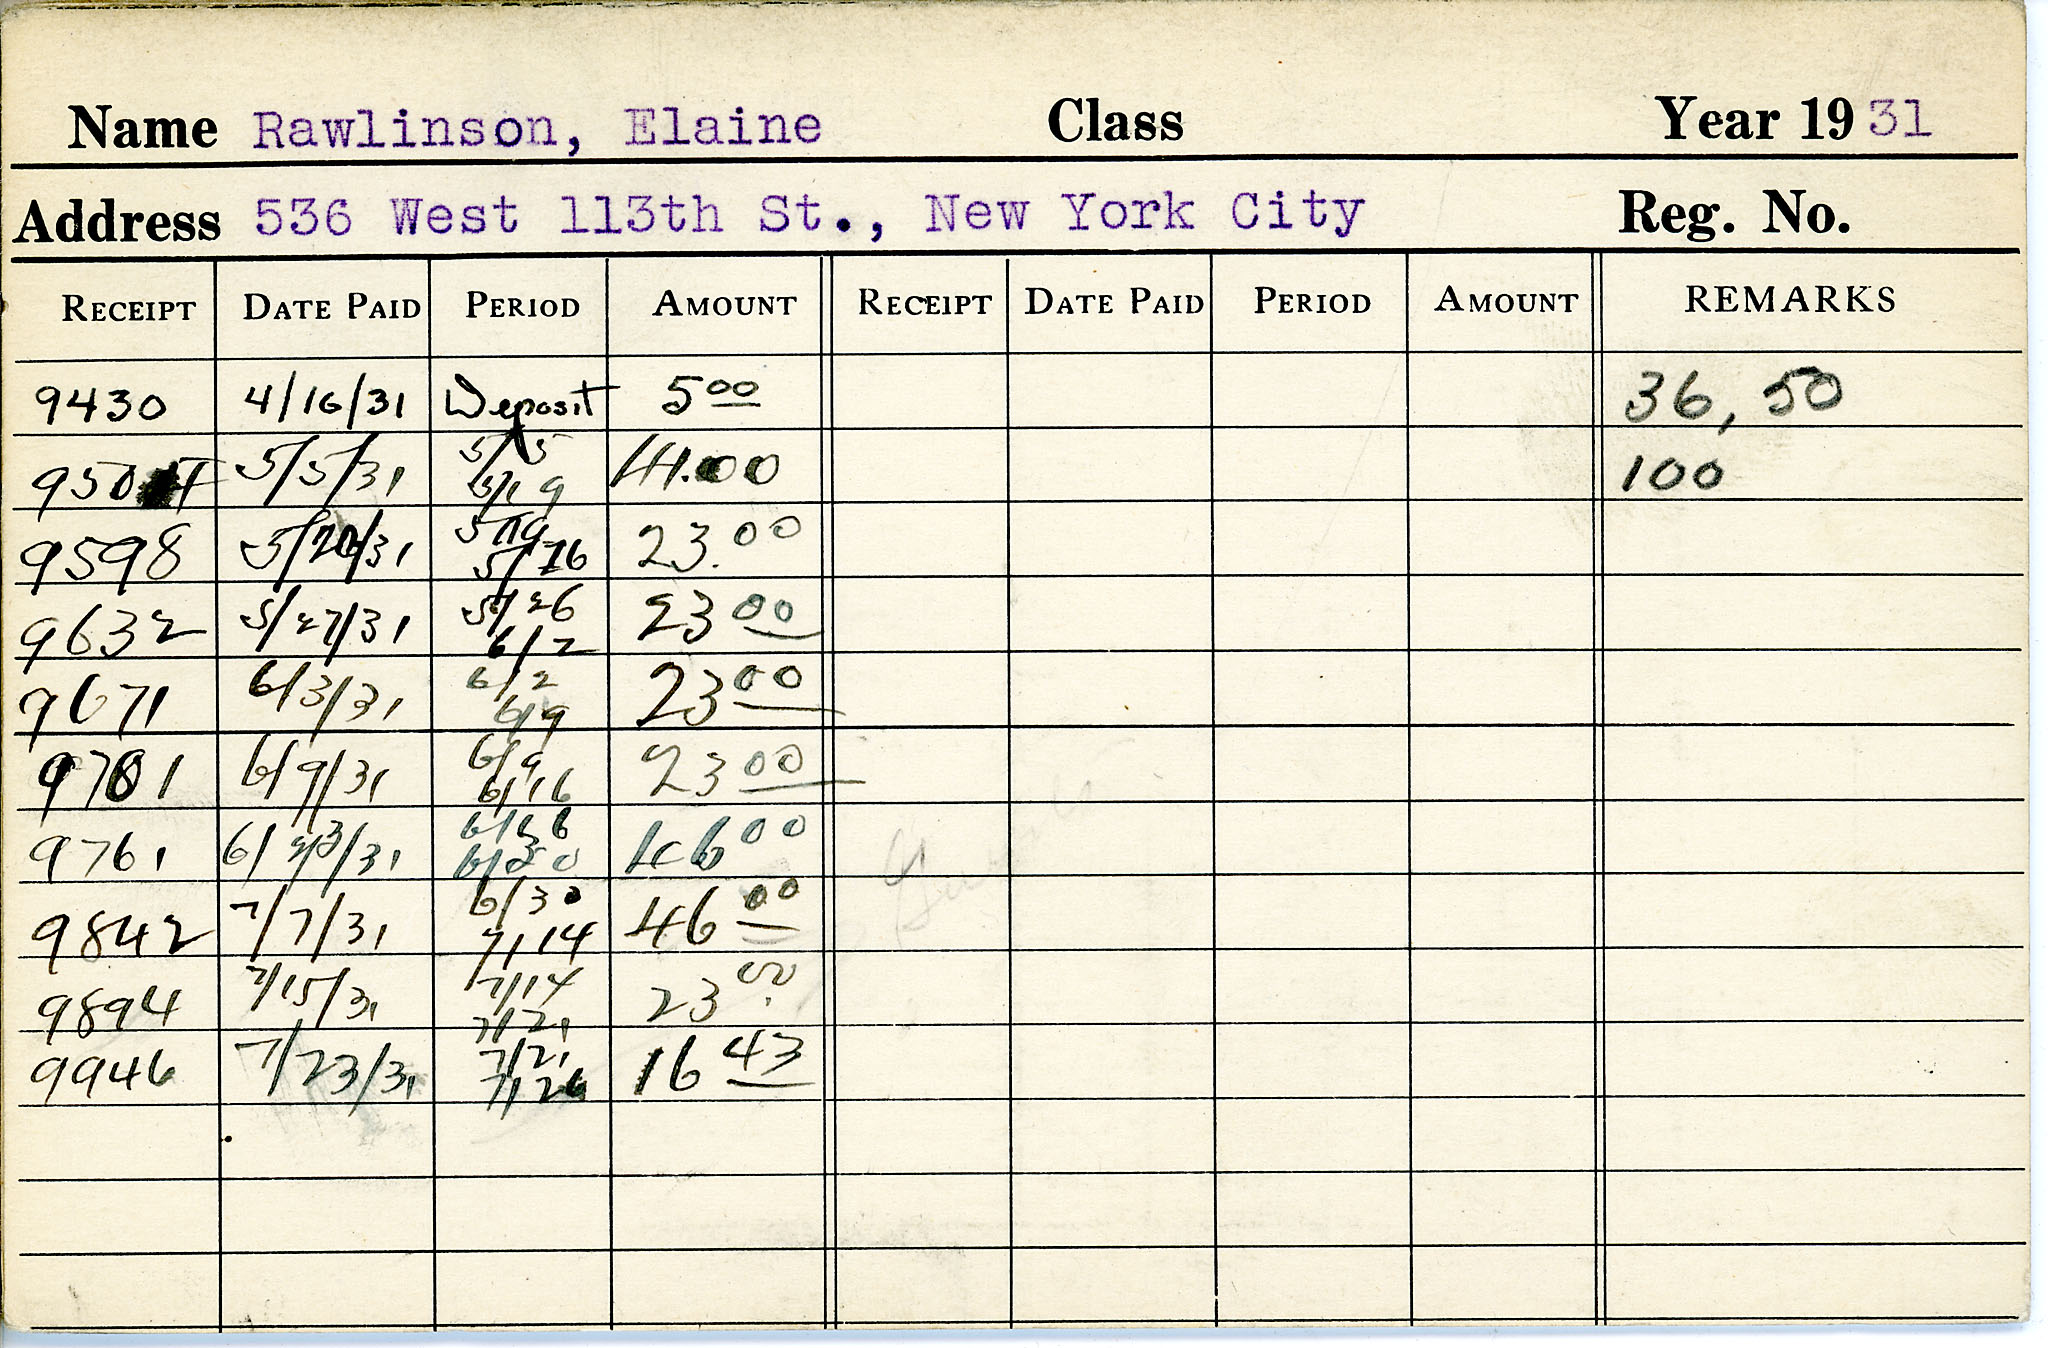 Name Rawlinson, Elaine Class Year 1931
Address 536 West 113th St., New York City Reg. No.
RECEIPT DATE PAID PERIOD AMOUNT RECEIPT DATE PAID PERIOD AMOUNT REMARKS
9430 4/16/31 Deposit 5 00 36, 50
5/5/31 5/5 41.00 100
5/19
9598 5/20/31 5/19 23.00
5/26
9632 5/27/31 5/26 23 00
6/2
9671 6/3/31 6/2 23 00
6/9
9701 6/9/31 6/9 23 00
6/16
9761 6/23/31 6/16 46 00
6/30
9842 7/7/31 6/30 46 00
7/14
9894 7/15/31 7/14 23 00
7/21
9946 7/23/31 7/21 16 43
7/26